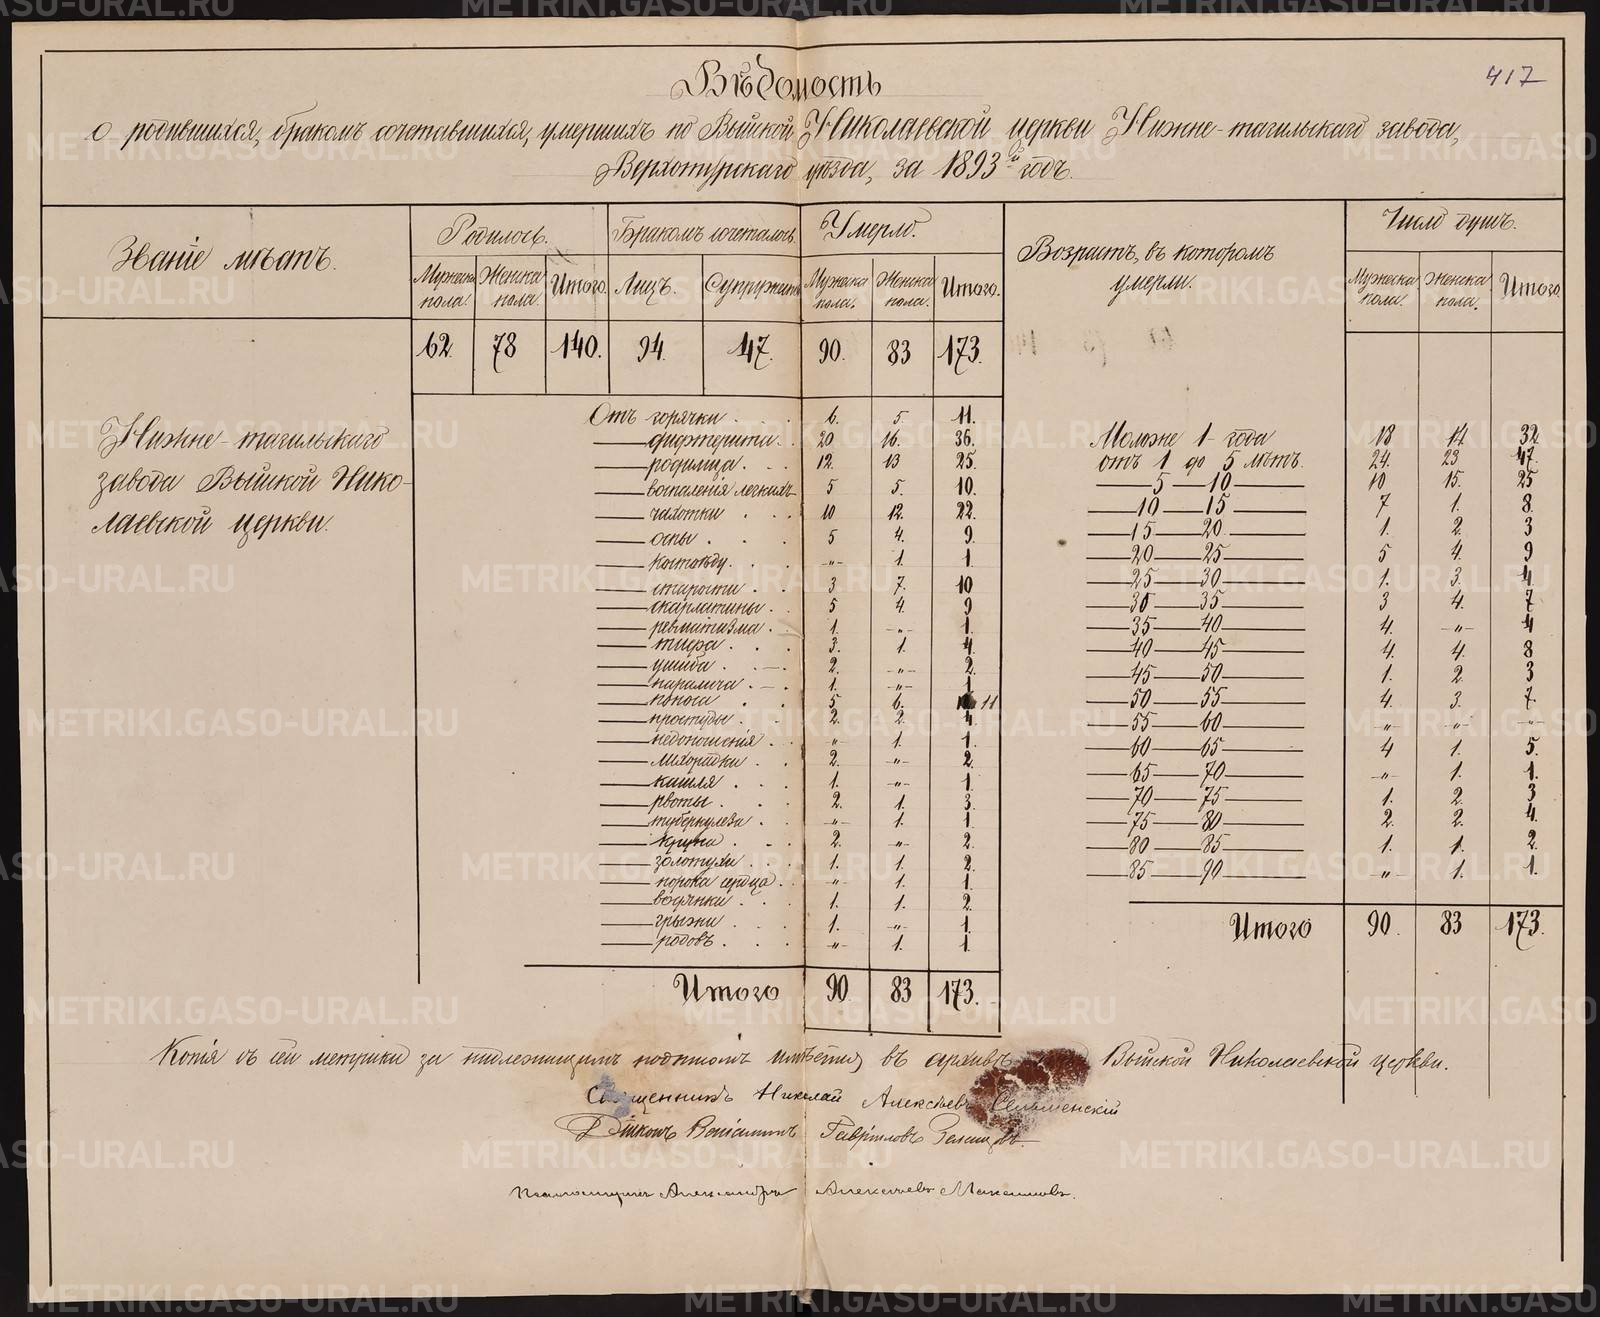 417
Вѣдомость
о родившихся, бракомъ сочетавшихся, умершихъ по Выйской Николаевской церкви Нижне-тагильскаго завода,
Верхотурскаго уѣзда, за 1893й годъ.
Званіе мѣстъ. Родилось. Бракомъ сочеталось. Умерло. Возрастъ, въ которомъ умерли. Число душъ.
Мужеска пола. Женска пола. Итого. Лицъ. Супружествъ Мужеска пола. Женска пола. Итого. Мужеска пола. Женска пола. Итого.
62. 78 140. 94. 47. 90. 83 173.
Нижне-тагильскаго
завода Выйской Нико-
лаевской церкви.
Отъ горячки . . 6. 5. 11.
— дифтерита . . 20 16. 36.
— родимца . . . 12. 13 25.
— воспаленія легкихъ 5 5. 10.
— чахотки . . . 10 12. 22.
— оспы . . . 5 4. 9.
— костоѣду . . . -"- 1. 1
— старости . . 3 7. 10
— скарлатины . . 5 4. 9
— ревматизма . 1. -"- 1.
— тифа . . . 3. 1. 4.
— ушиба . . . 2. -"- 2.
— паралича . . 1. -"- 1.
— поноса . . 5 6. 11
— простуды . . 2. 2. 4.
— недоношенія . . -"- 1. 1.
— лихорадки . . 2. -"- 2.
— кашля . . . 1. -"- 1.
— рвоты . . . 2. 1. 3.
— туберкулеза . -"- 1. 1.
— крупа . . . 2. -"- 2.
— золотухи . . . 1. 1. 2.
— порока сердца . -"- 1. 1.
— водянки . . . 1. 1. 2.
— грыжи . . . 1. -"- 1.
— родовъ . . . -"- 1. 1.
Итого 90 83 173.
Моложе 1 года 18 14 32
отъ 1 до 5 лѣтъ. 24. 23 47.
— 5 — 10 — 10 15. 25
— 10 — 15 — 7 1. 8.
— 15 — 20 — 1. 2. 3
— 20 — 25 — 5 4. 9
— 25 — 30 — 1. 3. 4
— 30 — 35 — 3 4. 7
— 35 — 40 — 4. -"- 4
— 40 — 45 — 4. 4. 8
— 45 — 50 — 1. 2. 3
— 50 — 55 — 4. 3. 7.
— 55 — 60 — -"- -"- -"-
— 60 — 65 — 4 1. 5.
— 65 — 70 — -"- 1. 1.
— 70 — 75 — 1. 2. 3
— 75 — 80 — 2. 2. 4.
— 80 — 85 — 1. 1. 2.
— 85 — 90 — -"- 1. 1.
Итого 90. 83 173.
Копія съ сей метрики за надлежащимъ подписомъ имѣется въ архивѣ Выйской Николаевской церкви.
Священникъ Николай Алексѣевъ Сельменскій
Діаконъ Веніаминъ Гавріиловъ
Псаломщикъ Александръ Алексѣевъ Максимовъ.
METRIKI.GASO-URAL.RU